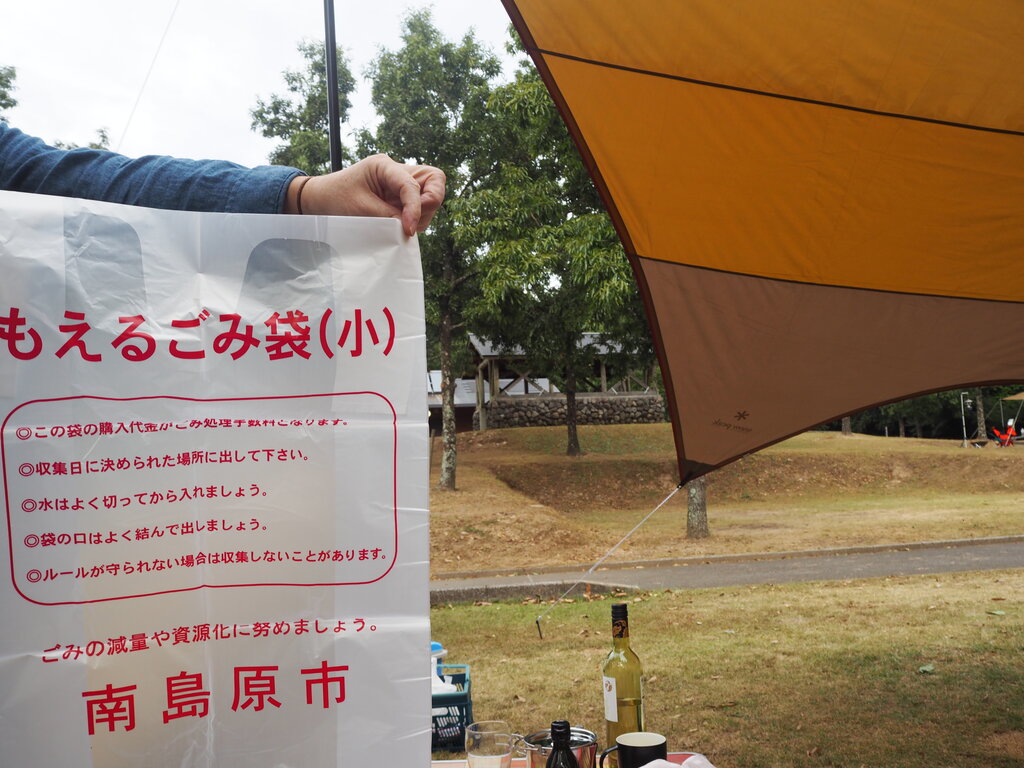 もえるごみ袋(小)
◎この袋の購入代金がごみ処理手数料となります。
◎収集日に決められた場所に出して下さい。
◎水はよく切ってから入れましょう。
◎袋の口はよく結んで出しましょう。
◎ルールが守られない場合は収集しないことがあります。
ごみの減量や資源化に努めましょう。
南島原市
snow peak